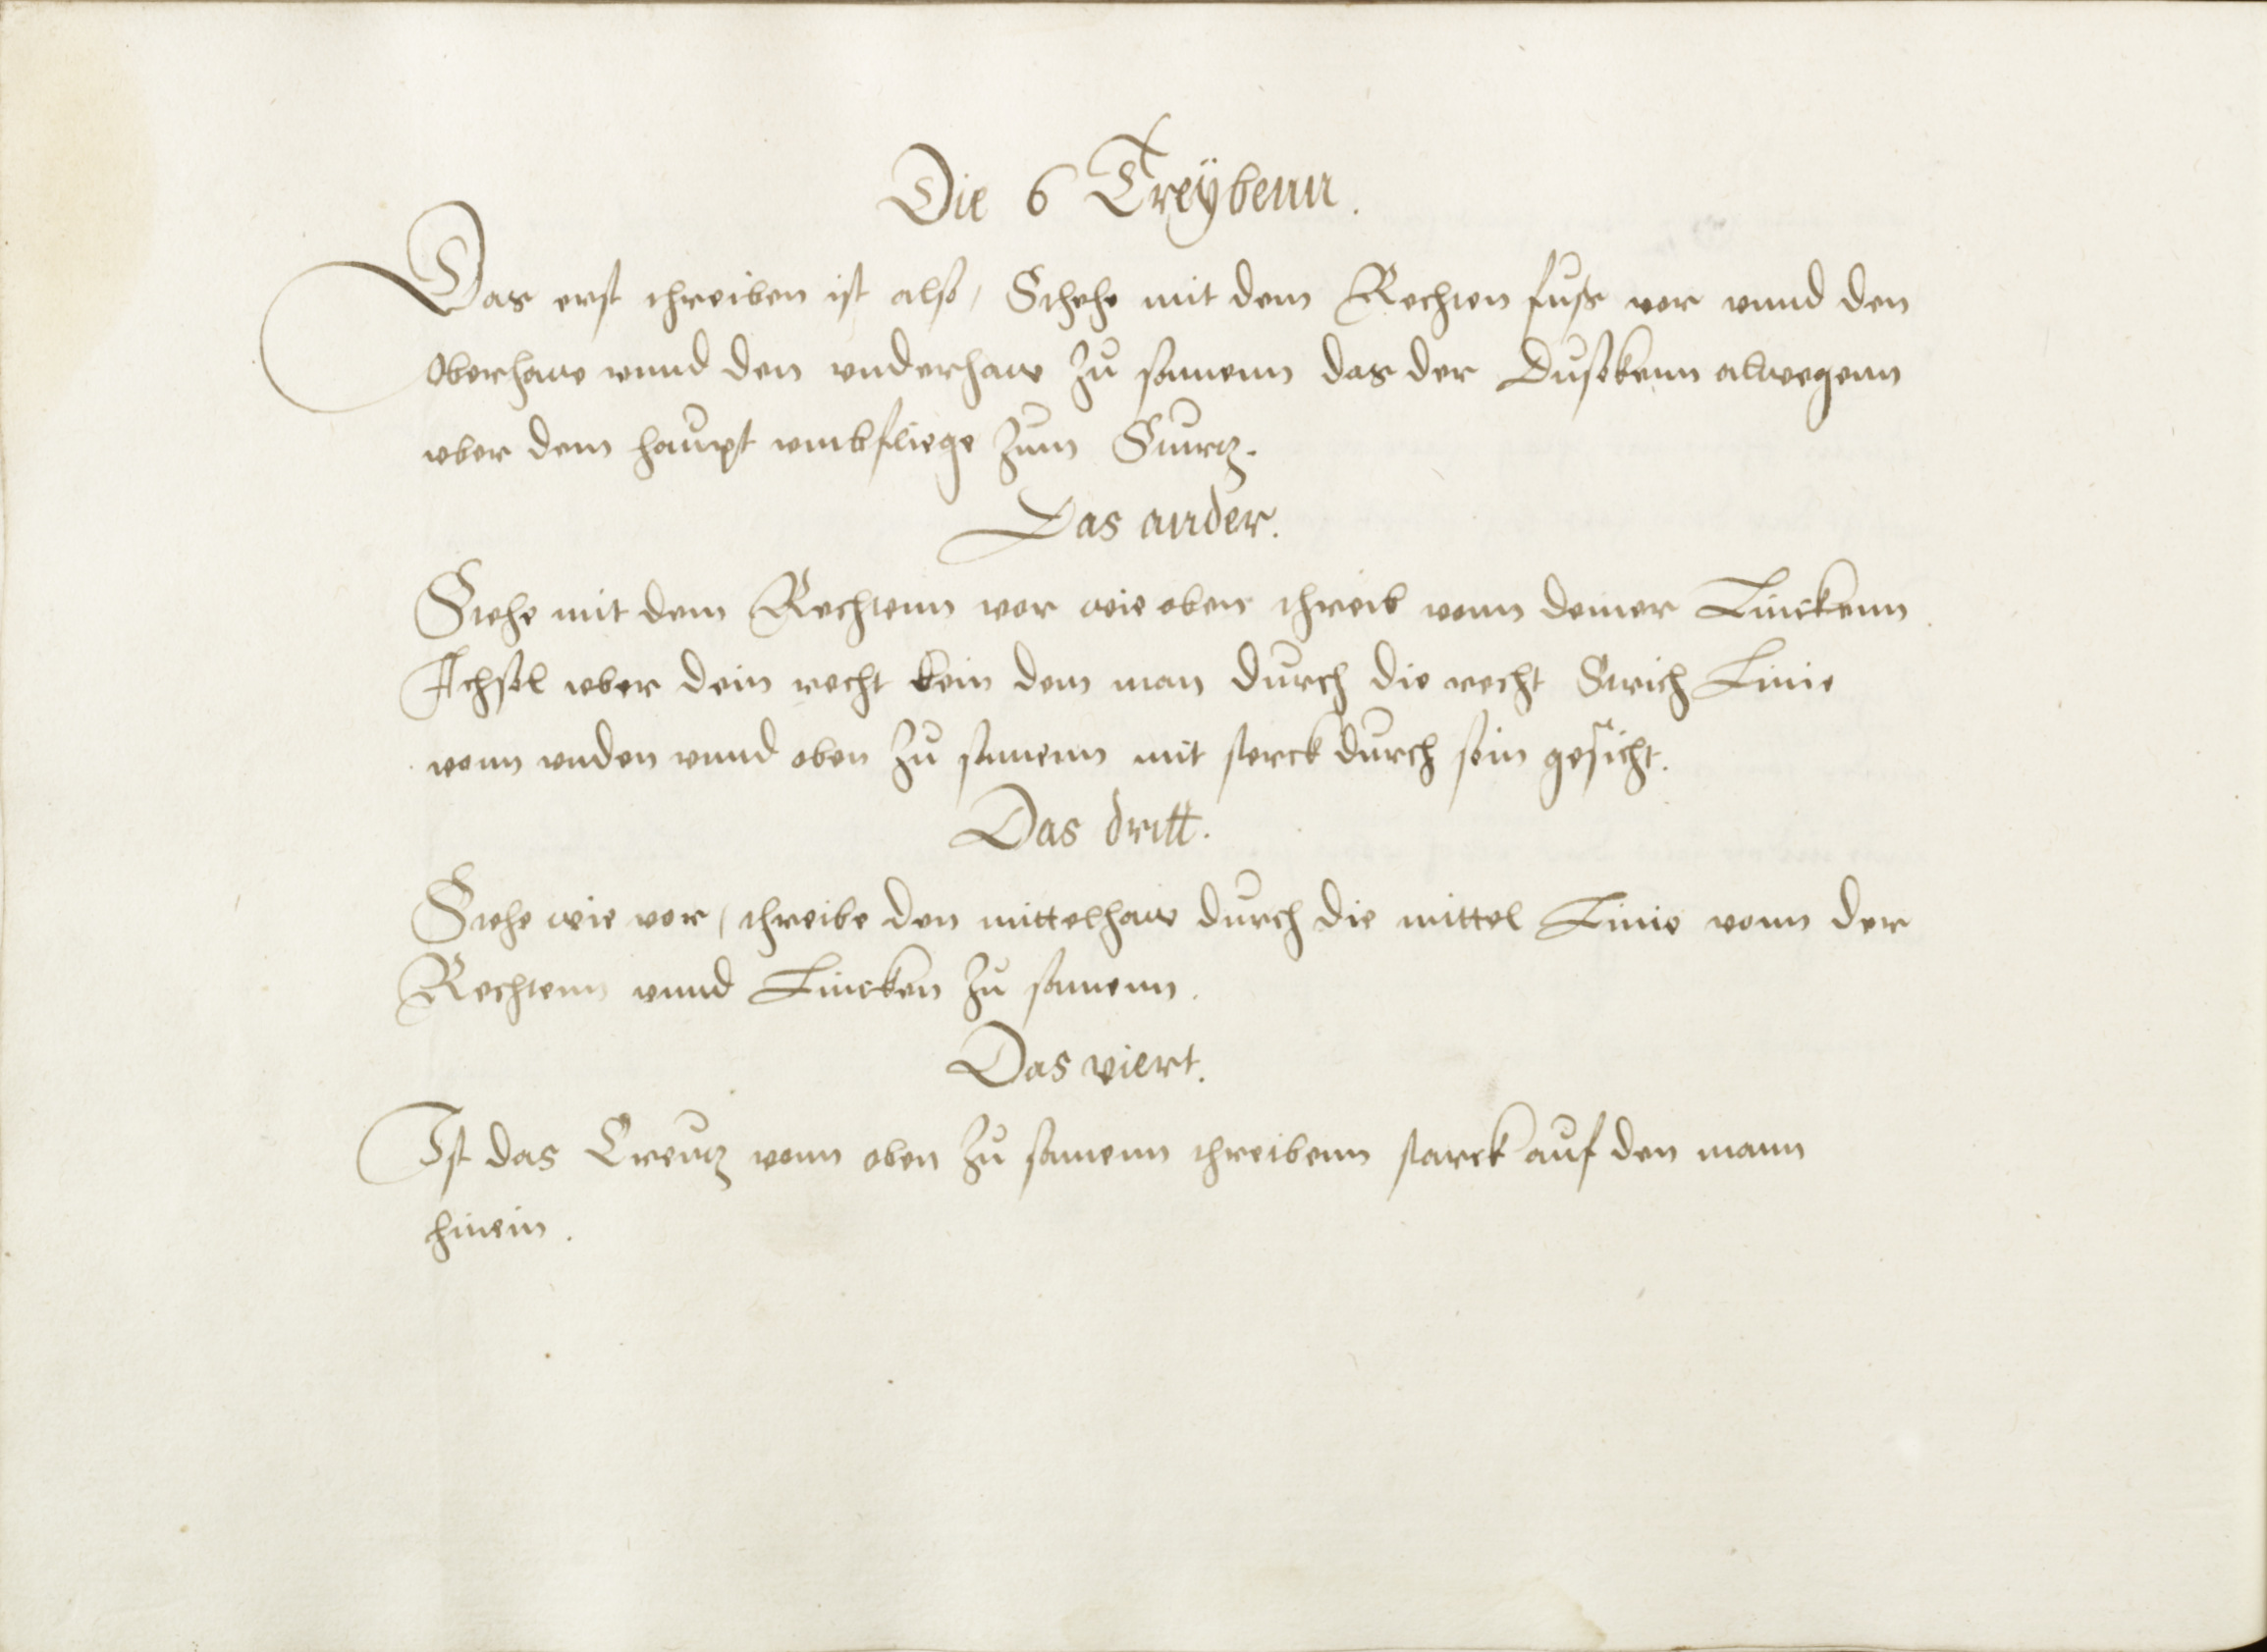 Die 6 Treÿbenn.
Das erst threiben ist also, Stehe mit dem Rechten fuß vor vnnd den
Oberhaw vnnd den vnderhaw Zu samenn das der Dusekenn alwegenn
vber dem haupt vmbfliege Zum Sturtz.
Das ander.
Stehe mit dem Rechtenn vor wie oben threib vonn deiner Linckenn
Achsel vber dein recht bein dem man durch die recht Strich Linie
vonn vnden vnnd oben Zu samenn mit sterck durch sein gesicht.
Das dritt.
Stehe wie vor, threibe den mittelhaw durch die mittel Linie vonn der
Rechtenn vnnd Lincken Zu samenn.
Das viert.
Ist das Creutz vonn oben Zu samenn threibenn starck auf den mann
hinein.